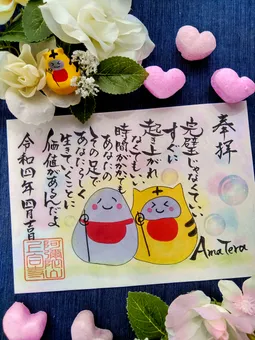 奉拝
完璧じゃなくていい
すぐに
起き上がれ
なくてもいい
時間がかかっても
あなたの
その足で
あなたらしく
生きていくことに
価値があるんだよ
令和四年四月吉日
AmaTera